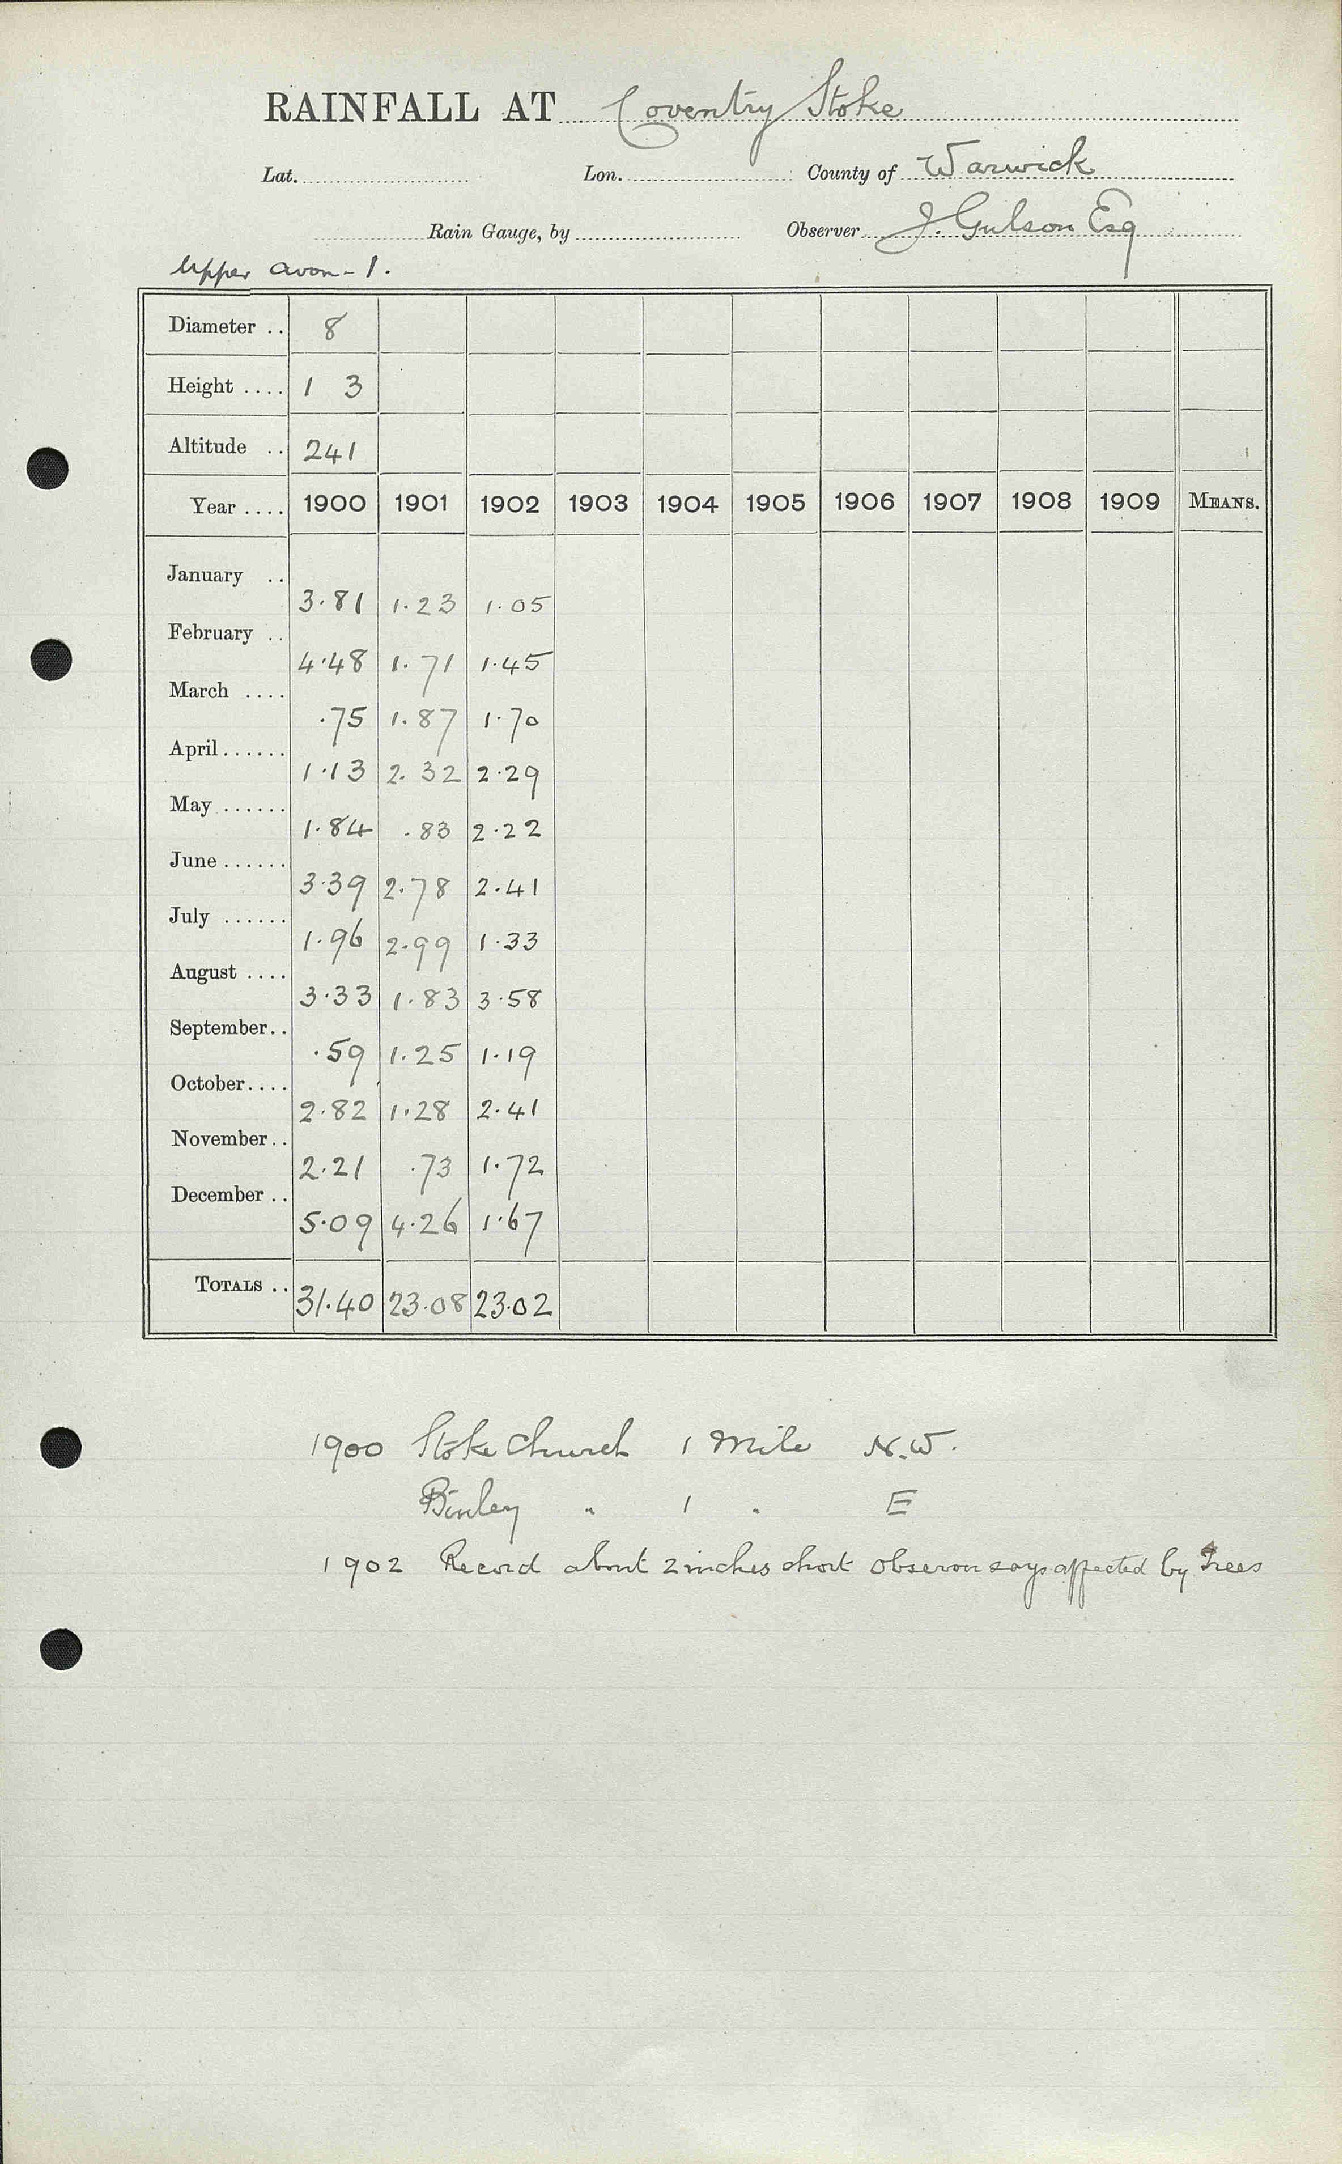 RAINFALL AT Coventry Stoke
Lat. Lon. County of Warwick
Rain Gauge, by Observer J. Gulson Esq
Upper Avon - 1.
Diameter .. 8
Height .... 1 3
Altitude .. 241
Year .... 1900 1901 1902 1903 1904 1905 1906 1907 1908 1909 MEANS.
January .. 3.81 1.23 1.05
February .. 4.48 1.71 1.45
March .... .75 1.87 1.70
April...... 1.13 2.32 2.29
May ...... 1.84 .83 2.22
June ...... 3.39 2.78 2.41
July ...... 1.96 2.99 1.33
August .... 3.33 1.83 3.58
September.. .59 1.25 1.19
October.... 2.82 1.28 2.41
November.. 2.21 .73 1.72
December .. 5.09 4.26 1.67
TOTALS .. 31.40 23.08 23.02
1900 Stoke Church 1 Mile N.W.
Binley " 1 " E
1902 Record about 2 inches short observer says affected by Trees